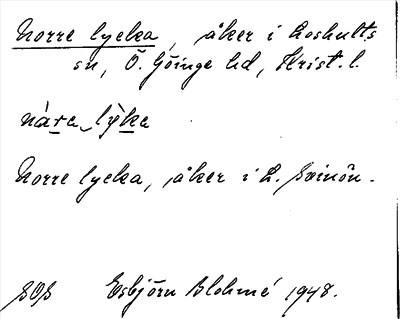 Norre lycka, åker i Loshults
sn, Ö. Göinge hd, Krist. l.
nàra lỳka
Norre lycka, åker i L. Svinön.
SOS Esbjörn Blohmé 1948.